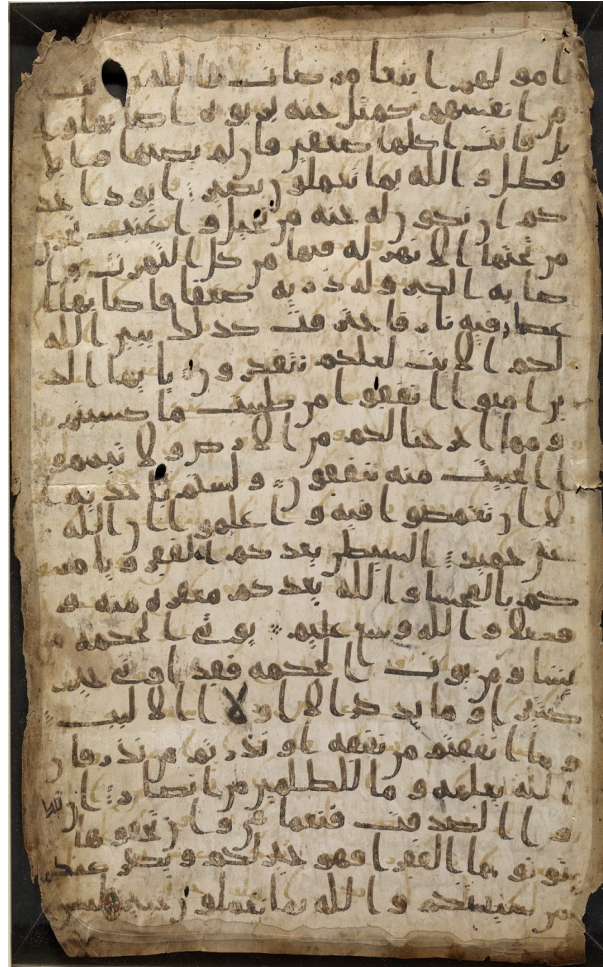 امولهم ابتغا مرضات الله وتثبيتا
من انفسهم كمثل جنه بربوه اصابها وا
بل فاتت اكلها ضعفين فان لم يصبها وابل
فطل و الله بما تعملون بصير ايود احد
كم ان تكون له جنه من نخيل و اعنب تجري
من تحتها الانهر له فيها من كل الثمرت وا
صابه الكبر وله ذريه ضعفا فاصابها ا
عصار فيه نار فاحترقت كذلك يبين الله
لكم الايت لعلكم تتفكرون يايها الذ
ين امنوا انفقوا من طيبت ما كسبتم
و مما اخرجنا لكم من الارض و لا تيممو
ا الخبيث منه تنفقون و لستم باخذيه ا
لا ان تغمضوا فيه و اعلموا ان الله
غني حميد الشيطن يعدكم الفقر و يامر
كم بالفحشا و الله يعدكم مغفره منه و
فضلا و الله وسع عليم يوتي الحكمه من
يشا و من يوت الحكمه فقد اوتي خيرا
كثيرا و ما يذكر الا اولوا الالبب
و ما انفقتم من نفقه او نذرتم من نذر فان
الله يعلمه و ما للظلمين من انصار ان تبد
و ا الصدقت فنعما هي و ان تخفوها و
توتوها الفقرا فهو خير لكم و يكفر عنكم
من سيتكم و الله بما تعملون خبير ليس